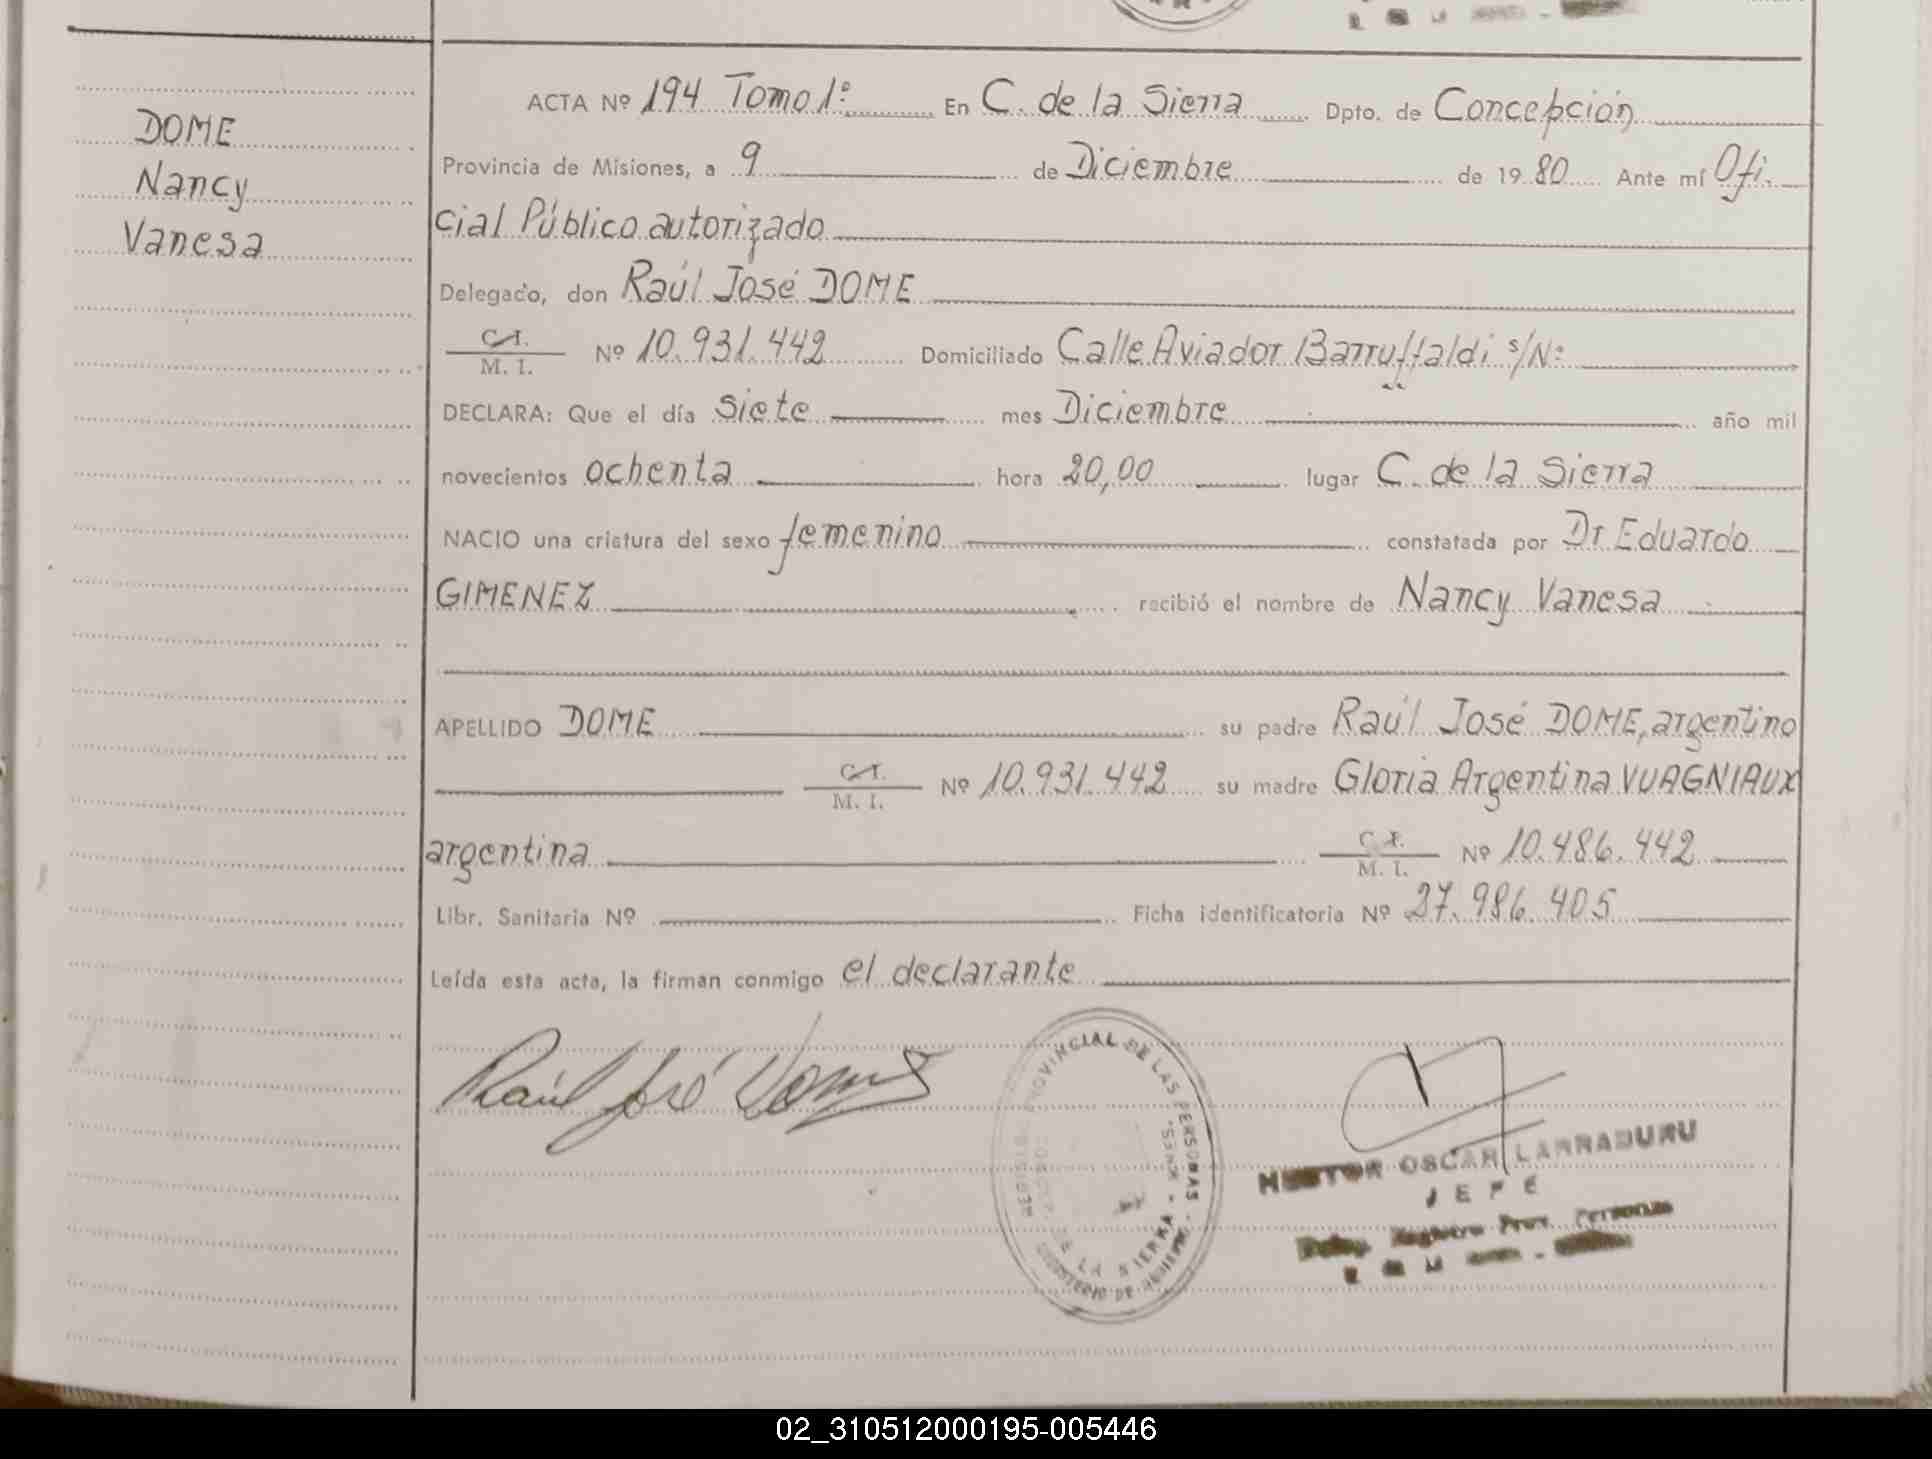 DOME
Nancy
Vanesa
ACTA Nº 194 Tomo 1º En C. de la Sierra Dpto. de Concepción
Provincia de Misiones, a 9 de Diciembre de 1980 Ante mí Ofi-
cial Público autorizado
Delegado, don Raúl José DOME
C. I.
M. I. Nº 10.931.442 Domiciliado Calle Aviador Barruffaldi s/Nº
DECLARA: Que el día siete mes Diciembre año mil
novecientos ochenta hora 20,00 lugar C. de la Sierra
NACIO una criatura del sexo femenino constatada por Dr Eduardo
GIMENEZ recibió el nombre de Nancy Vanesa
APELLIDO DOME su padre Raúl José DOME, argentino
C. I.
M. I. Nº 10.931.442 su madre Gloria Argentina VUAGNIAUX
argentina C. I.
M. I. Nº 10.486.442
Libr. Sanitaria Nº Ficha identificatoria Nº 27.986.405
Leída esta acta, la firman conmigo el declarante
Raúl José Dome
PROVINCIAL DE LAS PERSONAS
DE LA SIERRA
OSCAR LARRADURU
JEFE
Registro Prov. Personas
02_310512000195-005446